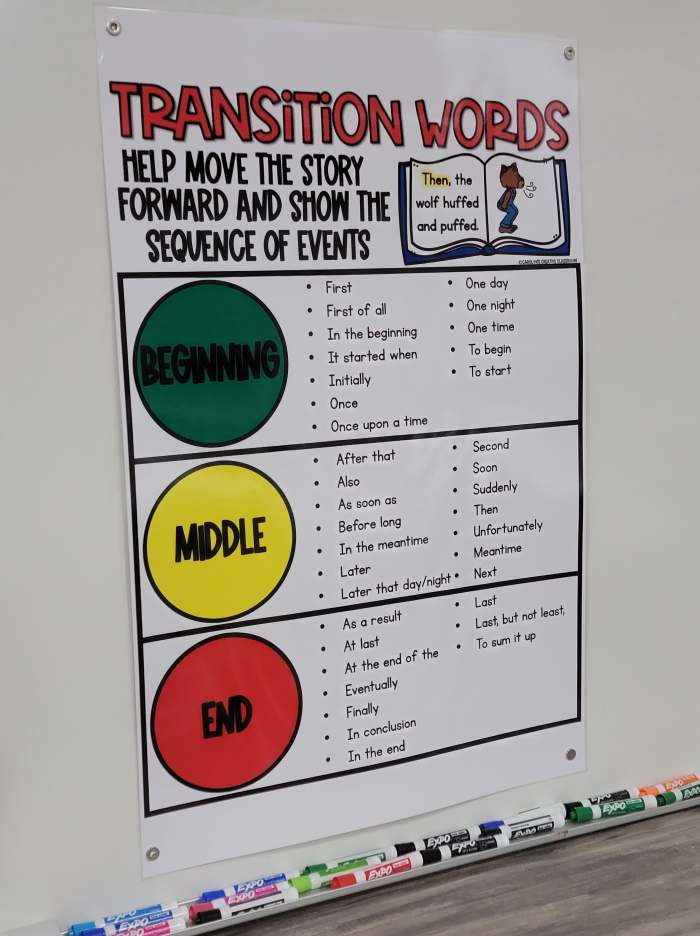 TRANSITION WORDS
HELP MOVE THE STORY
FORWARD AND SHOW THE
SEQUENCE OF EVENTS
Then, the
wolf huffed
and puffed.
BEGINNING
First
First of all
In the beginning
It started when
Initially
Once
Once upon a time
One day
One night
One time
To begin
To start
MIDDLE
After that
Also
As soon as
Before long
In the meantime
Later
Later that day/night
Second
Soon
Suddenly
Then
Unfortunately
Meantime
Next
END
As a result
At last
At the end of the
Eventually
Finally
In conclusion
In the end
Last
Last, but not least,
To sum it up
EXPO
EXPO
EXPO
EXPO
EXPO
EXPO
EXPO
EXPO
EXPO